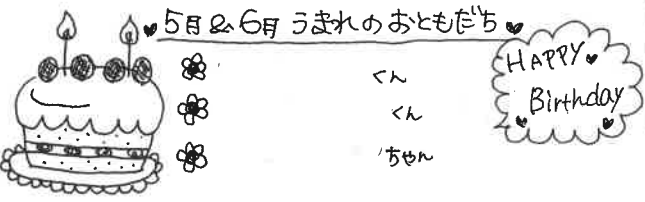 5月&6月うまれのおともだち
くん
くん
ちゃん
HAPPY
Birthday